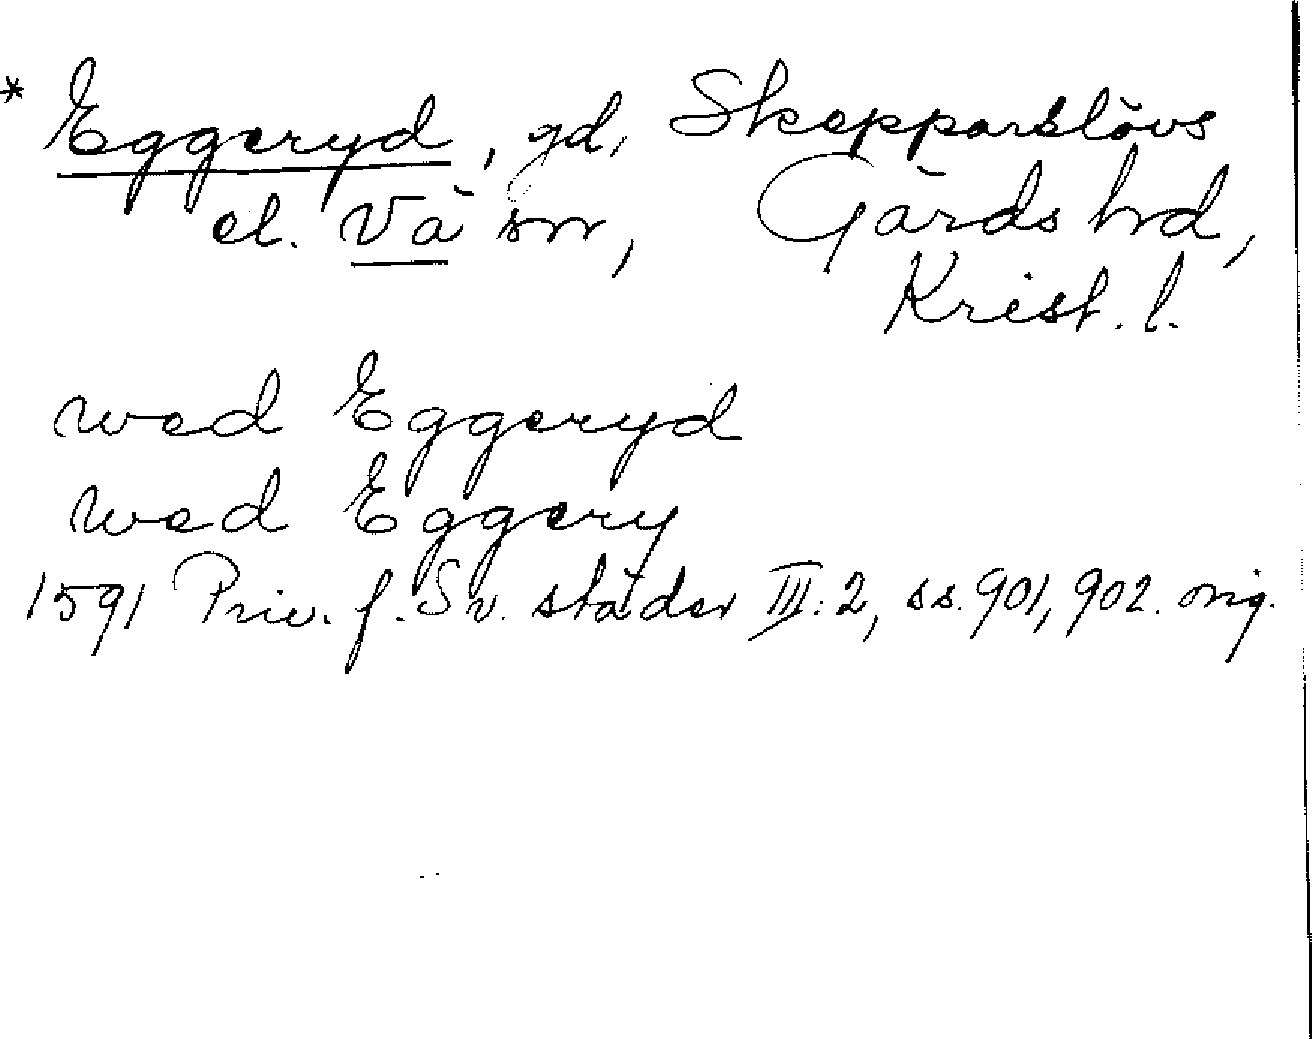 * Eggeryd, gd, Skepparslövs
el. Vä sn, Gärds hd,
Krist. l.
wed Eggeryd
wed Eggery
1591 Priv. f. Sv. städer III:2, ss. 901, 902. orig.